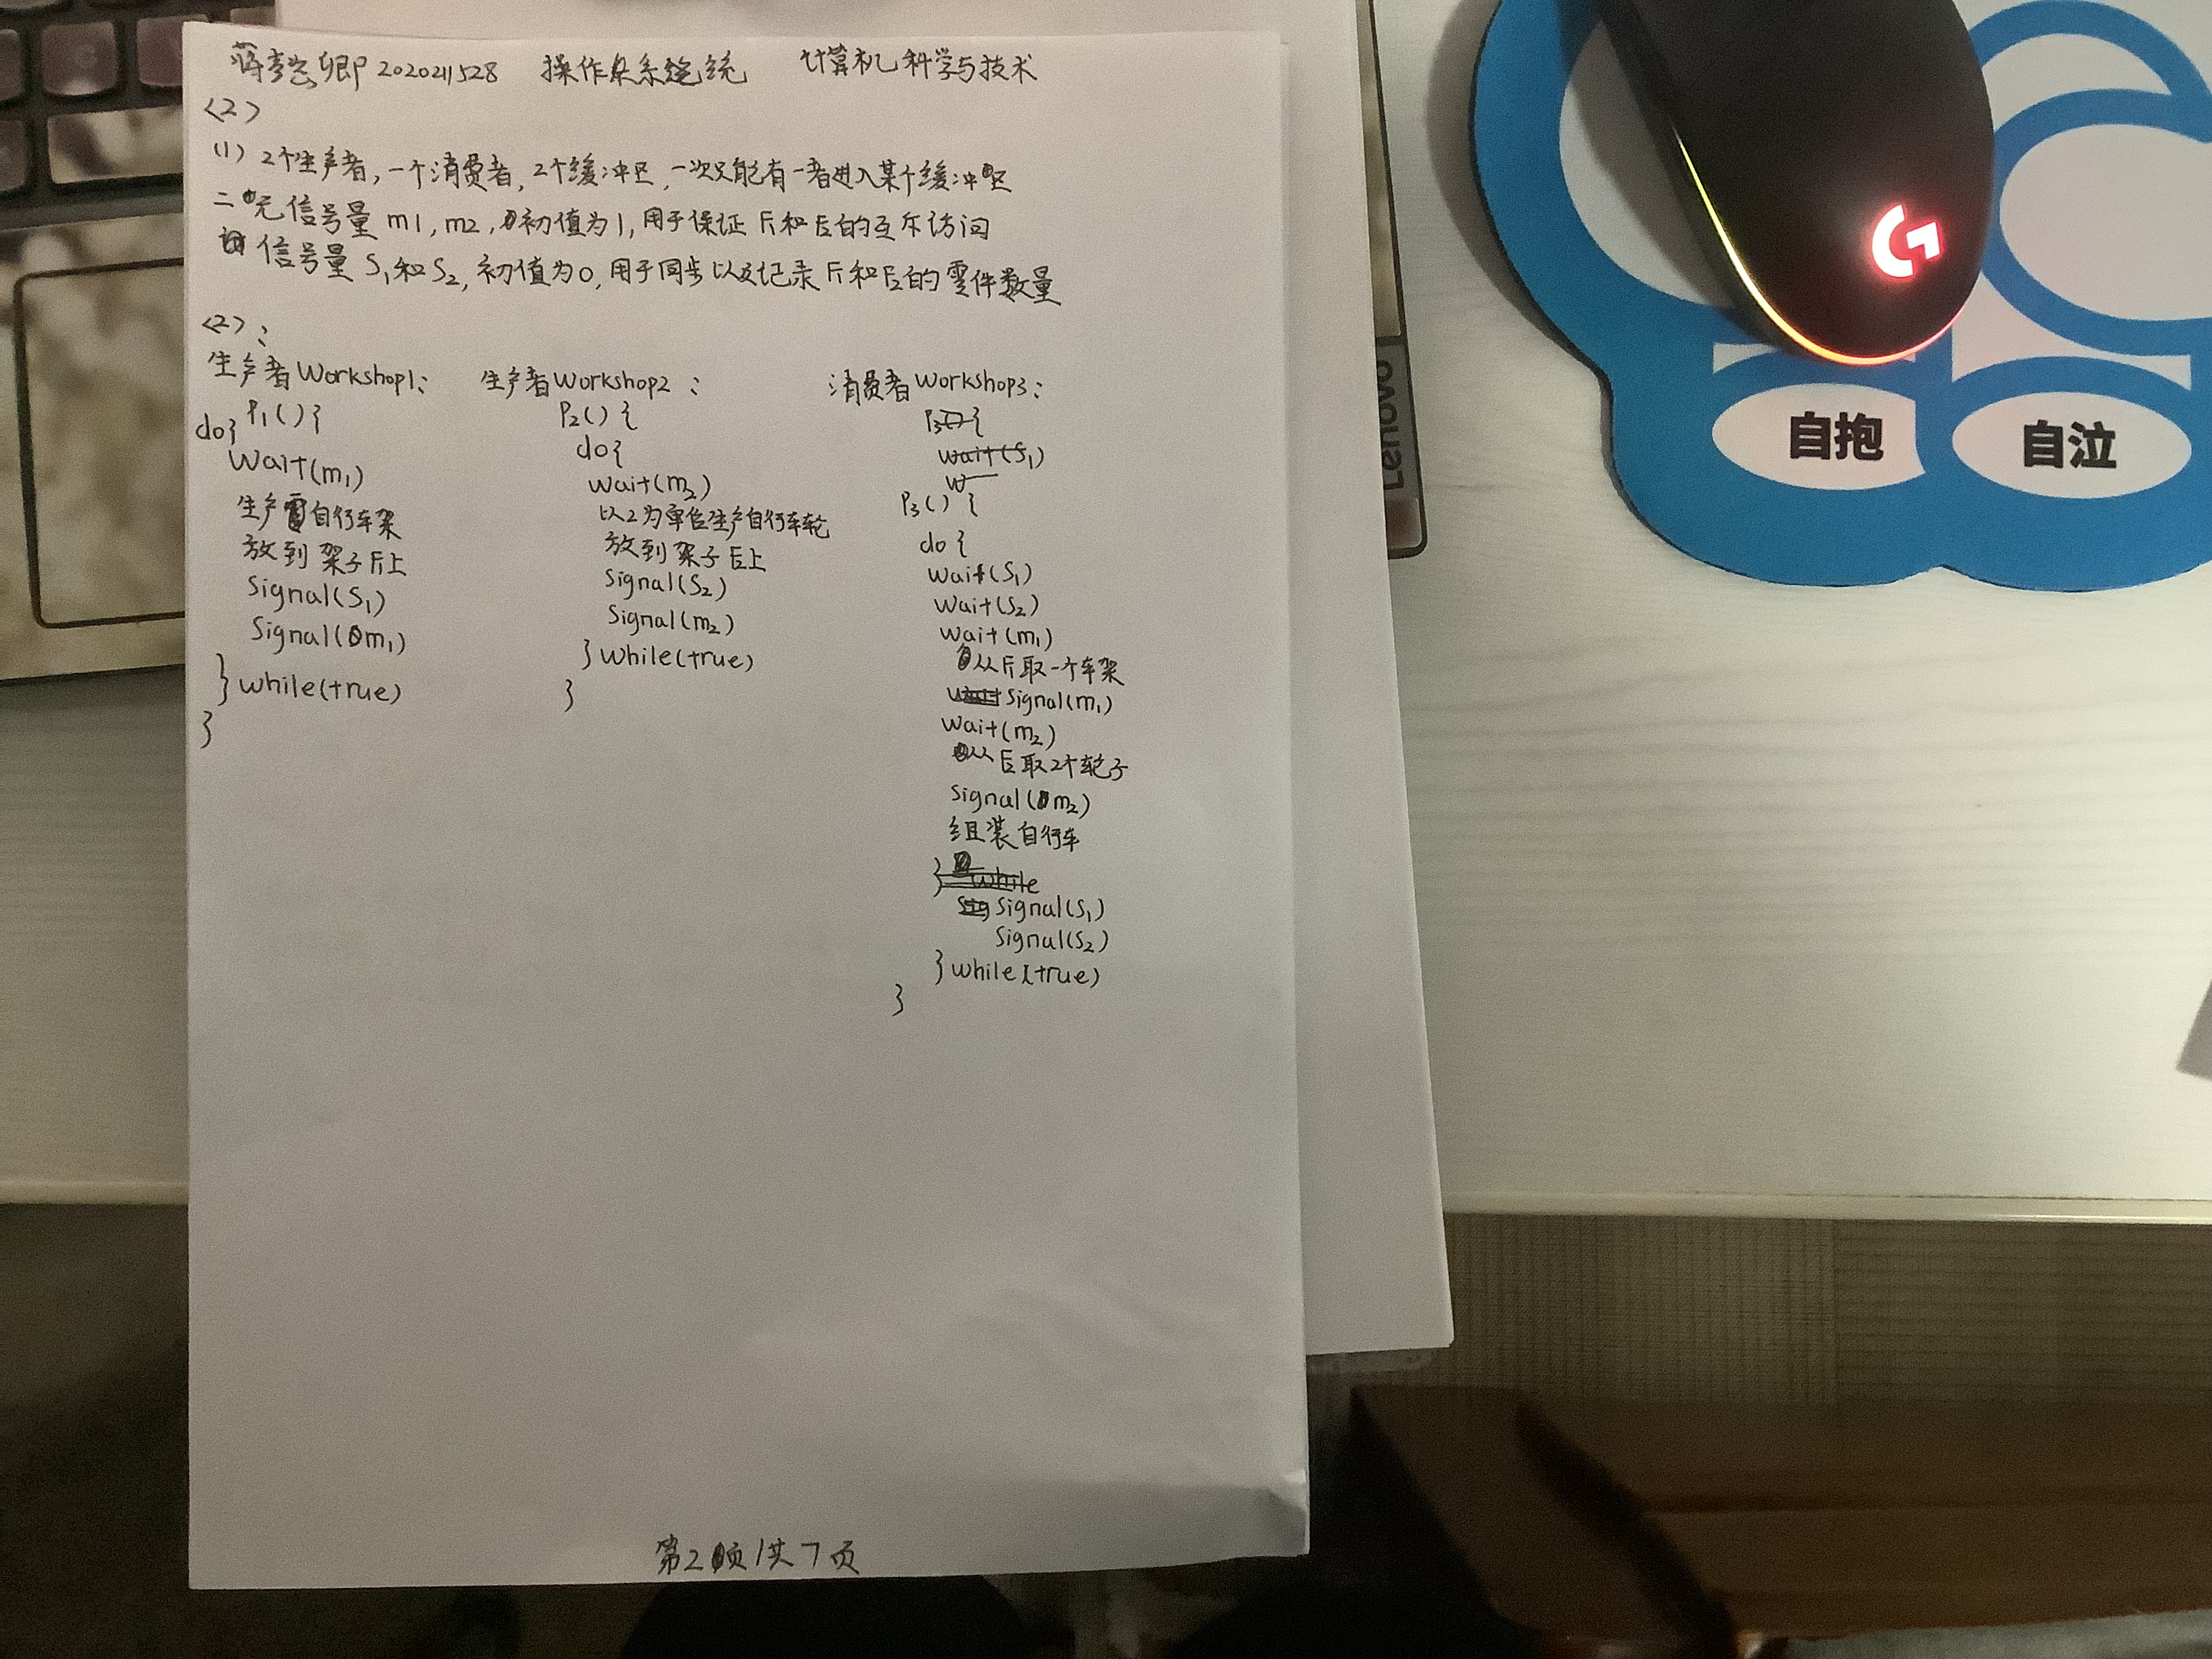 202021528 操作系统 计算机科学与技术
<2>
(1) 2个生产者,一个消费者,2个缓冲区,一次只能有一者进入某个缓冲区
二元信号量 m1, m2, 初值为1, 用于保证F1和F2的互斥访问
信号量 S1和S2, 初值为0, 用于同步以及记录F1和F2的零件数量
<2>:
生产者Workshop1:
P1(){
do{
Wait(m1)
生产自行车架
放到架子F1上
Signal(S1)
Signal(m1)
}while(true)
}
生产者Workshop2:
P2(){
do{
Wait(m2)
以2为单位生产自行车轮
放到架子F2上
Signal(S2)
Signal(m2)
}while(true)
}
消费者Workshop3:
P3(){
wait(S1)
W
P3(){
do{
Wait(S1)
Wait(S2)
Wait(m1)
从F1取一个车架
Signal(m1)
Wait(m2)
从F2取2个轮子
Signal(m2)
组装自行车
} while
Signal(S1)
Signal(S2)
}while(true)
}
第2页/共7页
Lenovo
自抱
自泣